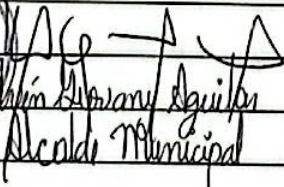 Giovany Aguilar
Alcalde Municipal